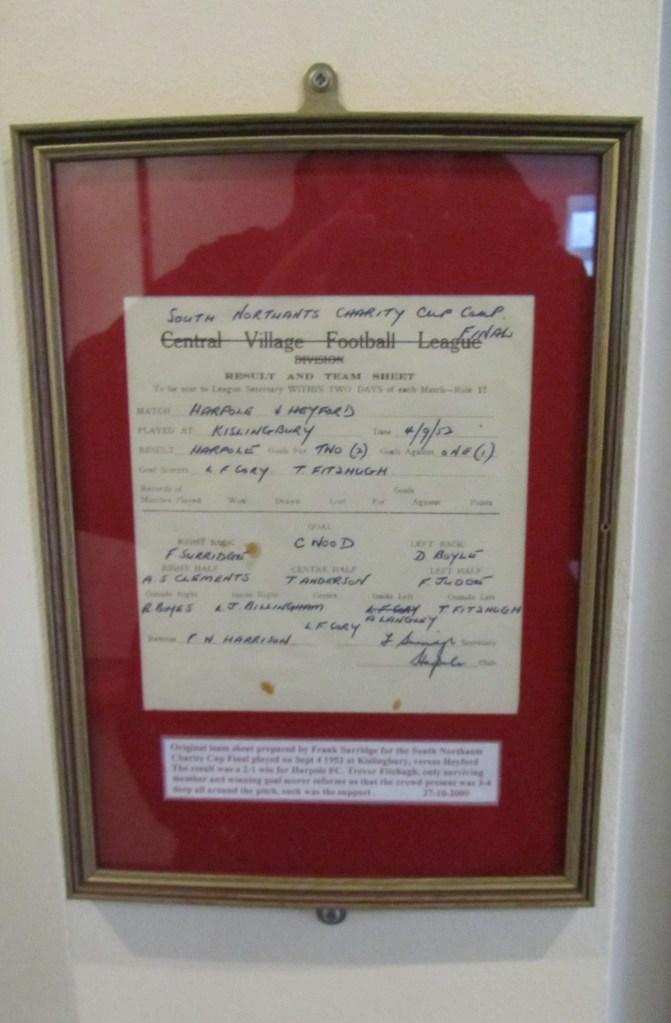 SOUTH NORTHANTS CHARITY CUP COMP.
FINAL
Central Village Football League
DIVISION
RESULT AND TEAM SHEET
To be sent to League Secretary WITHIN TWO DAYS of each Match—Rule 17
MATCH HARPOLE V HEYFORD
PLAYED AT KISLINGBURY Date 4/9/52
RESULT HARPOLE Goals For TWO (2) Goals Against ONE (1)
Goal Scorers L F CORY T. FITZHUGH
Records of Goals
Matches Played Won Drawn Lost For Against Points
GOAL
RIGHT BACK C WOOD LEFT BACK
F SURRIDGE D. BOYLE
RIGHT HALF CENTRE HALF LEFT HALF
A. S CLEMENTS T ANDERSON F. JUDGE
Outside Right Inside Right Centre Inside Left Outside Left
R. BOYES L. J. BILLINGHAM L F CORY T. FITZHUGH
L F CORY A LANGLEY
F. N. HARRISON Secretary
Club
Original team sheet prepared by Frank Surridge for the South Northants
Charity Cup Final played on Sept 4 1952 at Kislingbury, versus Heyford
The result was a 2-1 win for Harpole FC. Trevor Fitzhugh, only surviving
member and winning goal scorer informs us that the crowd present was 3-4
deep all around the pitch, such was the support . 27-10-2009